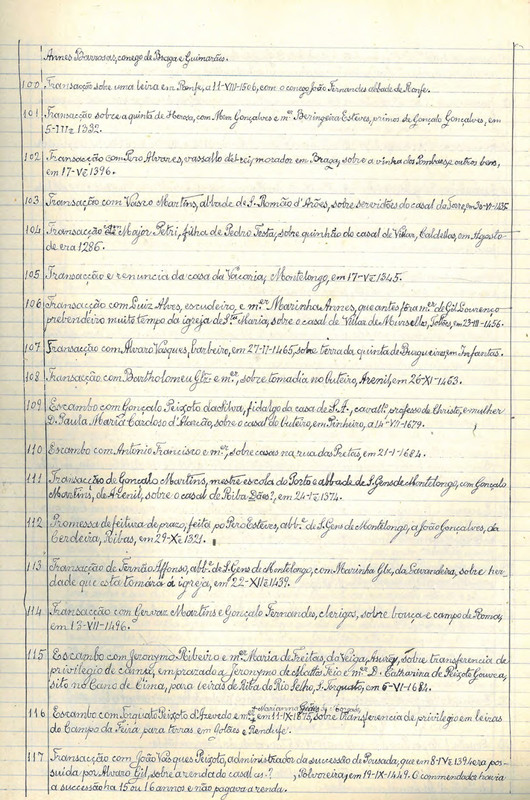 Annes Barrosas, conego de Braga e Guimarães.
100 Transacção sobre uma leira em Ronfe, a 11-VIII-1506, com o conego João Fernandes abbade de Ronfe.
101 Transacção sobre a quinta de, com Mem Gonçalves e mer Beringeira Esteves, primos de Gonçalo Gonçalves, em
5-III 1332.
102 Transacção com Pero Alvares, vassallo del-rei, morador em Braga, sobre a vinha dos Pombaes e outros bens,
em 17-V 1396.
103 Transacção com Vasco Martins, abbade de S. Romão d'Arões, sobre servidões do casal do
104 Transacção Major Petri, filha de Pedro Testa, sobre quinhão do casal de Vilar, Caldellas, em Agosto
de era 1286.
105 Transacção e renuncia da casa da Vacaria, Montelongo, em 17-V 1345.
106 Transacção com Luiz Alves, escudeiro, e mer Marinha Annes, que antes fôra mer de Gil Lourenço
prebendeiro muito tempo da igreja de Sta Maria, sobre o casal de Villar de Murzella, em 23-III-1456.
107 Transacção com Alvaro Vasques, barbeiro, em 27-II-1465, sobre terra da quinta de Brugueiros, em Infantas.
108 Transacção com Bartholomeu Glz e mer, sobre tomadia no Outeiro, em 26-XI-1463.
109 Escambo com Gonçalo Peixoto da Silva, fidalgo da casa de S.A., cavallo professo de Christo, e mulher
D. Paula Maria Cardoso d'Alarcão, sobre o casal do Outeiro, em Pinheiro, a 14-VII-1679.
110 Escambo com Antonio Francisco e mer, sobre casas na rua das Pretas, em 21-I-1684.
111 Transacção de Gonçalo Martins, mestre escola do Porto e abbade de S. Gens de Montelongo, com Gonçalo
Martins, de, sobre o casal de Riba, em 24-I 1374.
112 Promessa de feitura de prazo, feita po Pero Esteves, abbe. de S. Gens de Montelongo, a João Gonçalves, da
Cerdeira, Ribas, em 29-X 1321.
113 Transacção de Fernão Affonso, abbe. de S. Gens de Montelongo, com Marinha Glz, da Lavandeira, sobre her-
dade que esta tomára á igreja, em 22-XII 1439.
114 Transacção com Gervaz Martins e Gonçalo Fernandes, clerigos, sobre bouça e campo de,
em 13-VII-1496.
115 Escambo com Jeronymo Ribeiro e mer Maria de Freitas, da Veiga, Azurey, sobre transferencia de
privilegio de cima, emprazado a Jeronymo de Mattos Feio e mer D. Catharina de Peixoto Gouvea,
sito no Cano de Cima, para leiras de Riba do Rio Selho, S. Torquato, em 6-VI-1684.
116 Escambo com Torquato Peixoto d'Azevedo e mer, em 11-IX-1875, sobre transferencia de privilegio em leiras
do Campo da Feira para terras em Golães e Rendufe.
117 Transacção com João Vasques Peixoto, administrador da successão de Pousada, que em 8-IV 1394 era pos-
suida por Alvaro Gil, sobre a renda do casal as ? , Polvoreira, em 19-IX-1449. O commendador havia
a successão ha 15 ou 16 annos e não pagava a renda.